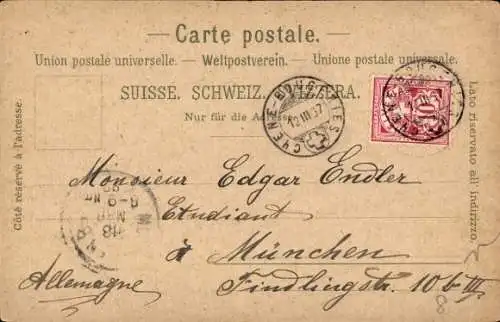 Carte postale.
Union postale universelle. — Weltpostverein. — Unione postale universale.
SUISSE. SCHWEIZ. SVIZZERA.
Nur für die Adresse.
Côté réservé à l'adresse.
Lato riservato all'indirizzo.
CHÊNE-BOUGERIES
12.III.97
10
Monsieur Edgar Endler
Etudiant
à München
Allemagne Findlingstr. 10b III
8